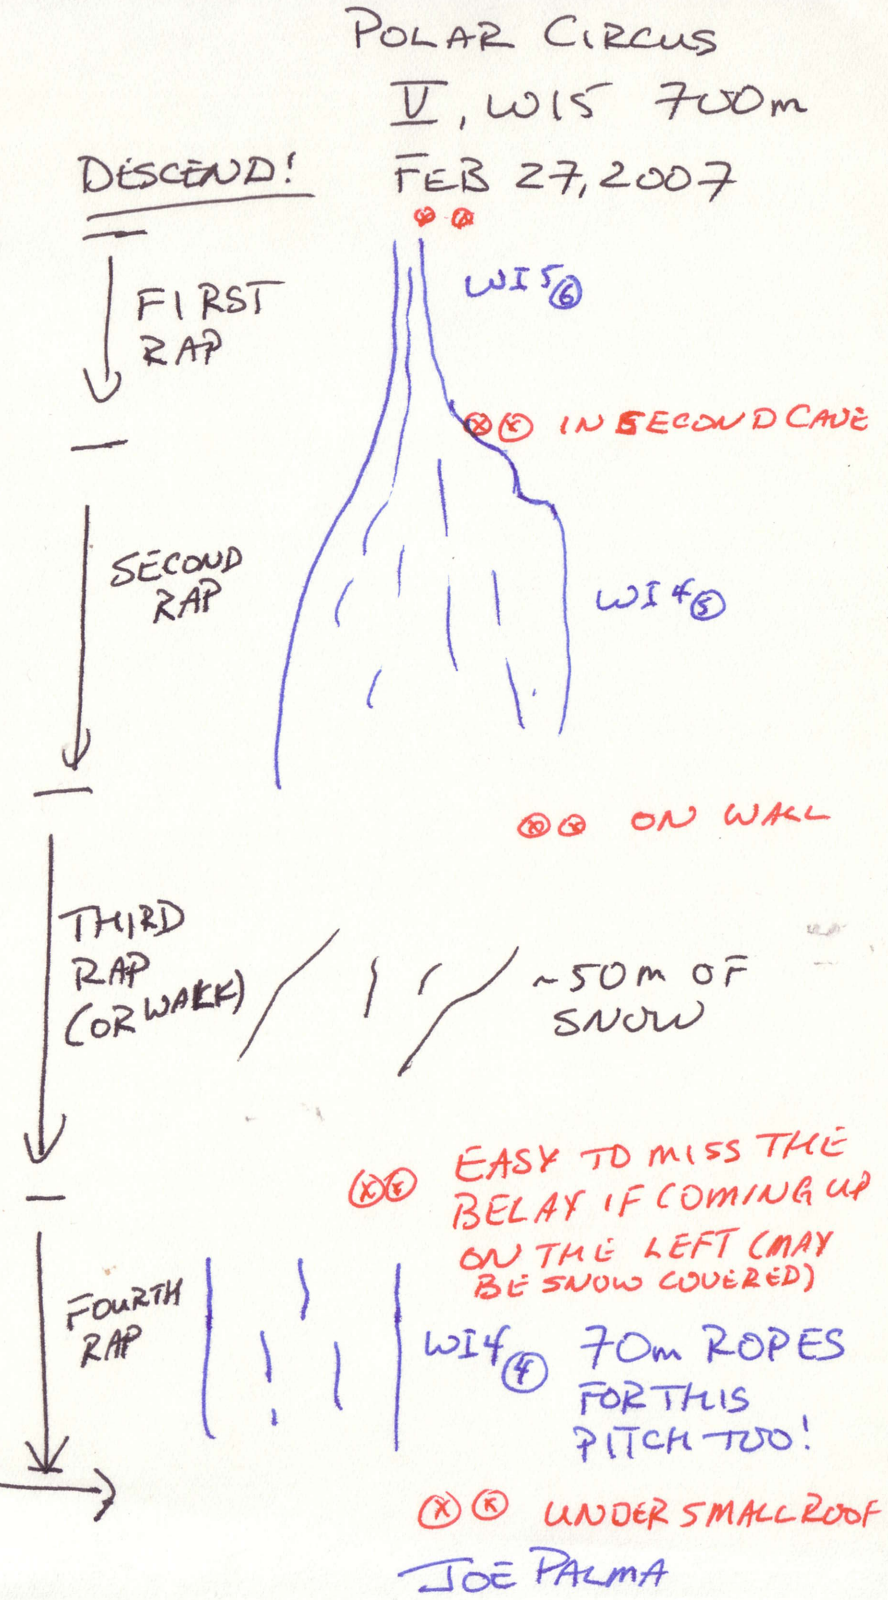 POLAR CIRCUS
V, WI5 700m
DESCEND!
FEB 27, 2007
FIRST
RAP
WI5 6
IN SECOND CAVE
SECOND
RAP
WI4 5
ON WALL
THIRD
RAP
(OR WALK)
~50m OF
SNOW
EASY TO MISS THE
BELAY IF COMING UP
ON THE LEFT (MAY
BE SNOW COVERED)
FOURTH
RAP
WI4 4
70m ROPES
FOR THIS
PITCH TOO!
UNDER SMALL ROOF
JOE PALMA